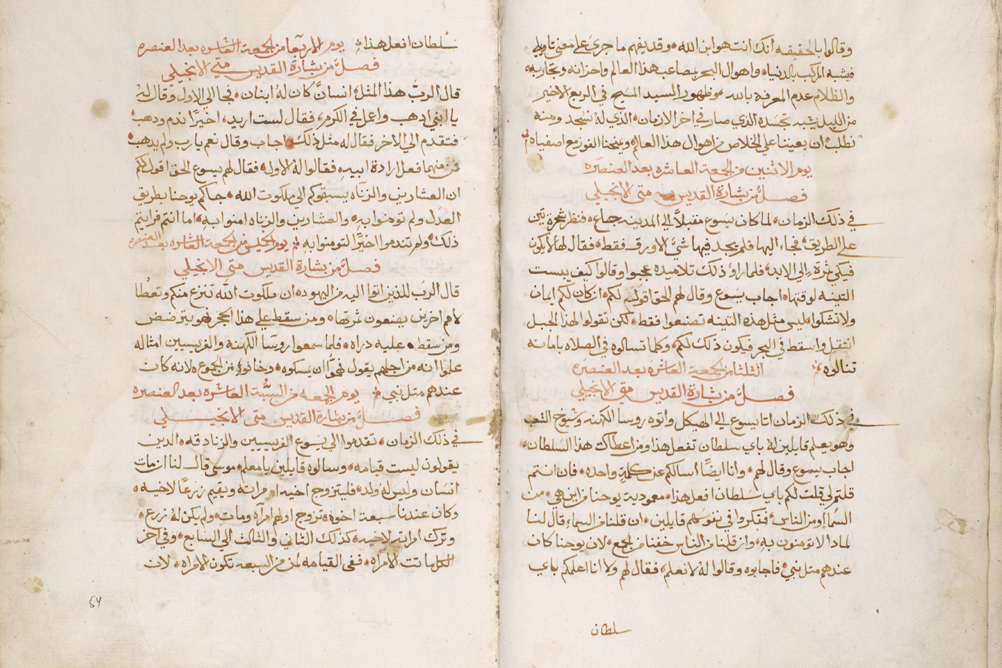 وقالوا بالحقيقه انك انت هو ابن الله وقد يفهم ما جرى على معنى تاويلي
فيشبه المركب بالدنيا واهوال البحر بمصاعب هذا العالم واحزانه وتجاربه
والظلام عدم المعرفة بالله وظهور السيد المسيح في الربع الاخير
من الليل يشبه بجسده الذي صار في اخر الازمان الذي له نسجد ومنه
نطلب ان يعيننا على الخلاص من اهوال هذا العالم ويمنحنا الفوز مع اصفياه
يوم الاثنين من الجمعة العاشره بعد العنصره
فصل من بشارة القديس متى الانجيلي
في ذلك الزمان لما كان يسوع مقبلاً الى المدينه جاع فنظر شجرة تين
على الطريق فجاء اليها فلم يجد فيها شي الا ورق فقط فقال لها لا يكون
فيكي ثمرة الى الابد فلما راوا ذلك تلاميذه عجبوا وقالوا كيف يبست
التينه لوقتها اجاب يسوع وقال لهم الحق اقول لكم ان كان لكم ايمان
ولا تشكوا ليس مثل هذه التينه تصنعوا فقط لكن تقولوا لهذا الجبل
انتقل واسقط في البحر فيكون ذلك لكم وكلما تسالوه في الصلاه بامانه
تنالوه الثلثا من الجمعة العاشره بعد العنصره
فصل من بشارة القديس متى الانجيلي
في ذلك الزمان اتا يسوع الى الهيكل واتوه روسا الكهنه وشيوخ الشعب
وهو يعلم قايلين له باي سلطان تفعل هذا ومن اعطاك هذا السلطان
اجاب يسوع وقال لهم وانا ايضًا اسالكم عن كلمة واحده فان انتم
قلتم لي قلت لكم باي سلطان افعل هذا معمودية يوحنا من اين هي من
السما او من الناس ففكروا في نفوسهم قايلين ان قلنا من السما قال لنا
لماذا لا تومنون به وان قلنا من الناس خفنا من الجمع لان يوحنا كان
عندهم مثل نبي فاجابوه وقالوا له لا نعلم فقال لهم ولا انا اعلمكم باي
سلطان
سلطان افعل هذا يوم الاربعا من الجمعة العاشره بعد العنصره
فصل من بشارة القديس متى الانجيلي
قال الربّ هذا المثل انسانٌ كان له ابنان فجا الى الاول وقال له
يا ابني اذهب واعمل في الكرم فقال لست اريد اخيرًا ندم ودهب
فتقدم الى الاخر فقال له مثل ذلك اجاب وقال نعم يا رب ولم يدهب
فمن منهما فعل ارادة ابيه فقالوا له الاول فقال لهم يسوع الحق اقول لكم
ان العشارين والزناه يسبقوكم الى ملكوت الله جاكم يوحنا بطريق
العدل ولم تومنوا به والعشارين والزناه امنوا به اما انتم فرايتم
ذلك ولم تندموا اخيرًا لتومنوا به يوم الخميس من الجمعة العاشره بعد العنصره
فصل من بشارة القديس متى الانجيلي
قال الرب للذين اتوا اليه من اليهود ان ملكوت الله تنزع منكم وتعطا
لامم اخرين يصنعون ثمرتها ومن سقط على هذا الحجر فهو يترضض
ومن سقط عليه دراه فلما سمعوا روسا الكهنة والفريسيين امثاله
علموا انه من اجلهم يقول فهموا ان يمسكوه وخافوا من الجموع لانه كان
عندهم مثل نبي يوم الجمعه من السبّة العاشره بعد العنصره
فصل من بشارة القديس متى الانجيلي
في ذلك الزمان تقدموا الى يسوع الفريسيين والزنادقه الدين
يقولون ليست قيامه وسالوه قايلين يا معلم موسى قال لنا ان مات
انسان وليس له ولد فليتزوج اخيه امراته ويقيم زرعًا لاخيه
وكان عندنا سبعة اخوه تزوج اولهم امرآه ومات ولم يكن له زرع
وترك امراته لاخيه كذلك الثاني والثالث الى السابع وفي اخر
الكل ماتت الامراه ففي القيامه لمن من السبعه تكون الامراه لان
54